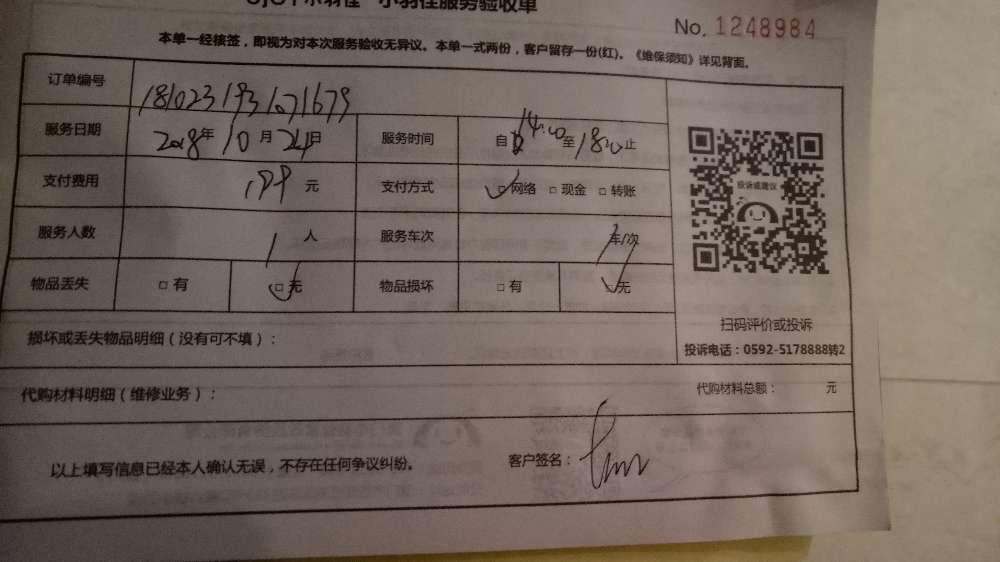 小羽佳服务验收单
No. 1248984
本单一经核签，即视为对本次服务验收无异议。本单一式两份，客户留存一份(红)。《维保须知》详见背面。
订单编号 1810231931071679
服务日期 2018年10月24日 服务时间 自14:00至18:00止
支付费用 元 支付方式 网络 □ 现金 □ 转账
服务人数 1人 服务车次 车/次
物品丢失 □ 有 □ 无 物品损坏 □ 有 □ 无
投诉或建议
扫码评价或投诉
投诉电话：0592-5178888转2
损坏或丢失物品明细（没有可不填）：
代购材料明细（维修业务）： 代购材料总额： 元
以上填写信息已经本人确认无误，不存在任何争议纠纷。 客户签名：